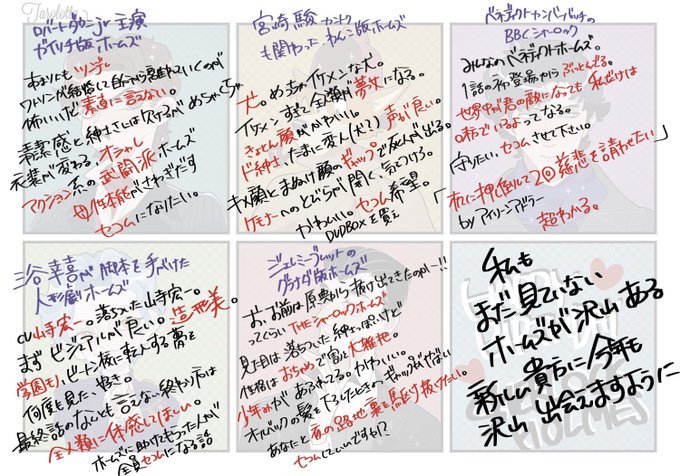 Tarolotta
ロバートダウニーJr 主演
ガイリチ版ホームズ
あまりにもツンデレ
ワトソンが結婚して自分から離れていくのが
怖いいんだ 素直に言えない。
清潔感と紳士さには欠けるが めちゃくちゃ
衣装が変わる、オシャレ
アクション系の武闘派ホームズ
母性本能がさわぎだす
セコムになりたい。
宮崎駿カントク
も関わった わんこ版ホームズ
犬。めっちゃイケメンな犬。
イケメンすぎて全人類が夢女になる。
きょとん顔がかわいい。声が良い。
ド紳士。たまに変人(犬?)
ギャップで死人が出る。
キメ顔とまぬけ顔の
ケモナーへのとびらが開く、気をつけろ。
かわいい。セコム希望。
DVDBOXを買え
ベネディクトカンバーバッチの
BBCシャーロック
みんなのベネディクトホームズ。
1話の初登場からぶっとんでる。
世界中が君の敵になっても 私だけは
味方でいるよってなる。
守りたい、セコムさせて下さい。
「机に押し倒して2回慈悲を請わせたい」
by アイリーンアドラー
超わかる。
三谷幸喜が脚本を手がけた
人形劇ホームズ
cv山寺宏一。落ちついた山寺宏一。
まずビジュアルが良い。造形美。
学園もの、ビートン校に転入する夢を
何度も見た、好き。
最終話のなんとも言えない終わり方は
全人類に体感してほしい。
ホームズに助けてもらった人が
全員セコムになる話
ジェレミーブレットの
グラナダ版ホームズ
お、お前は原典から抜け出てきたのかー!!
ってくらいTHEシャーロックホームズ
見た目は落ちついた紳士っぽいけど
性格はおちゃめで寅と大雑把。
少年みがあふれてる。かわいい。
オールバックの髪を下ろしたときのギャップがやばい
あなたと夜の路地裏を駆け抜けたい。
セコムしていいですか!?
私も
まだ見ていない
ホームズが沢山ある
新しい貴方に今年も
沢山 出会えますように
HOLMES